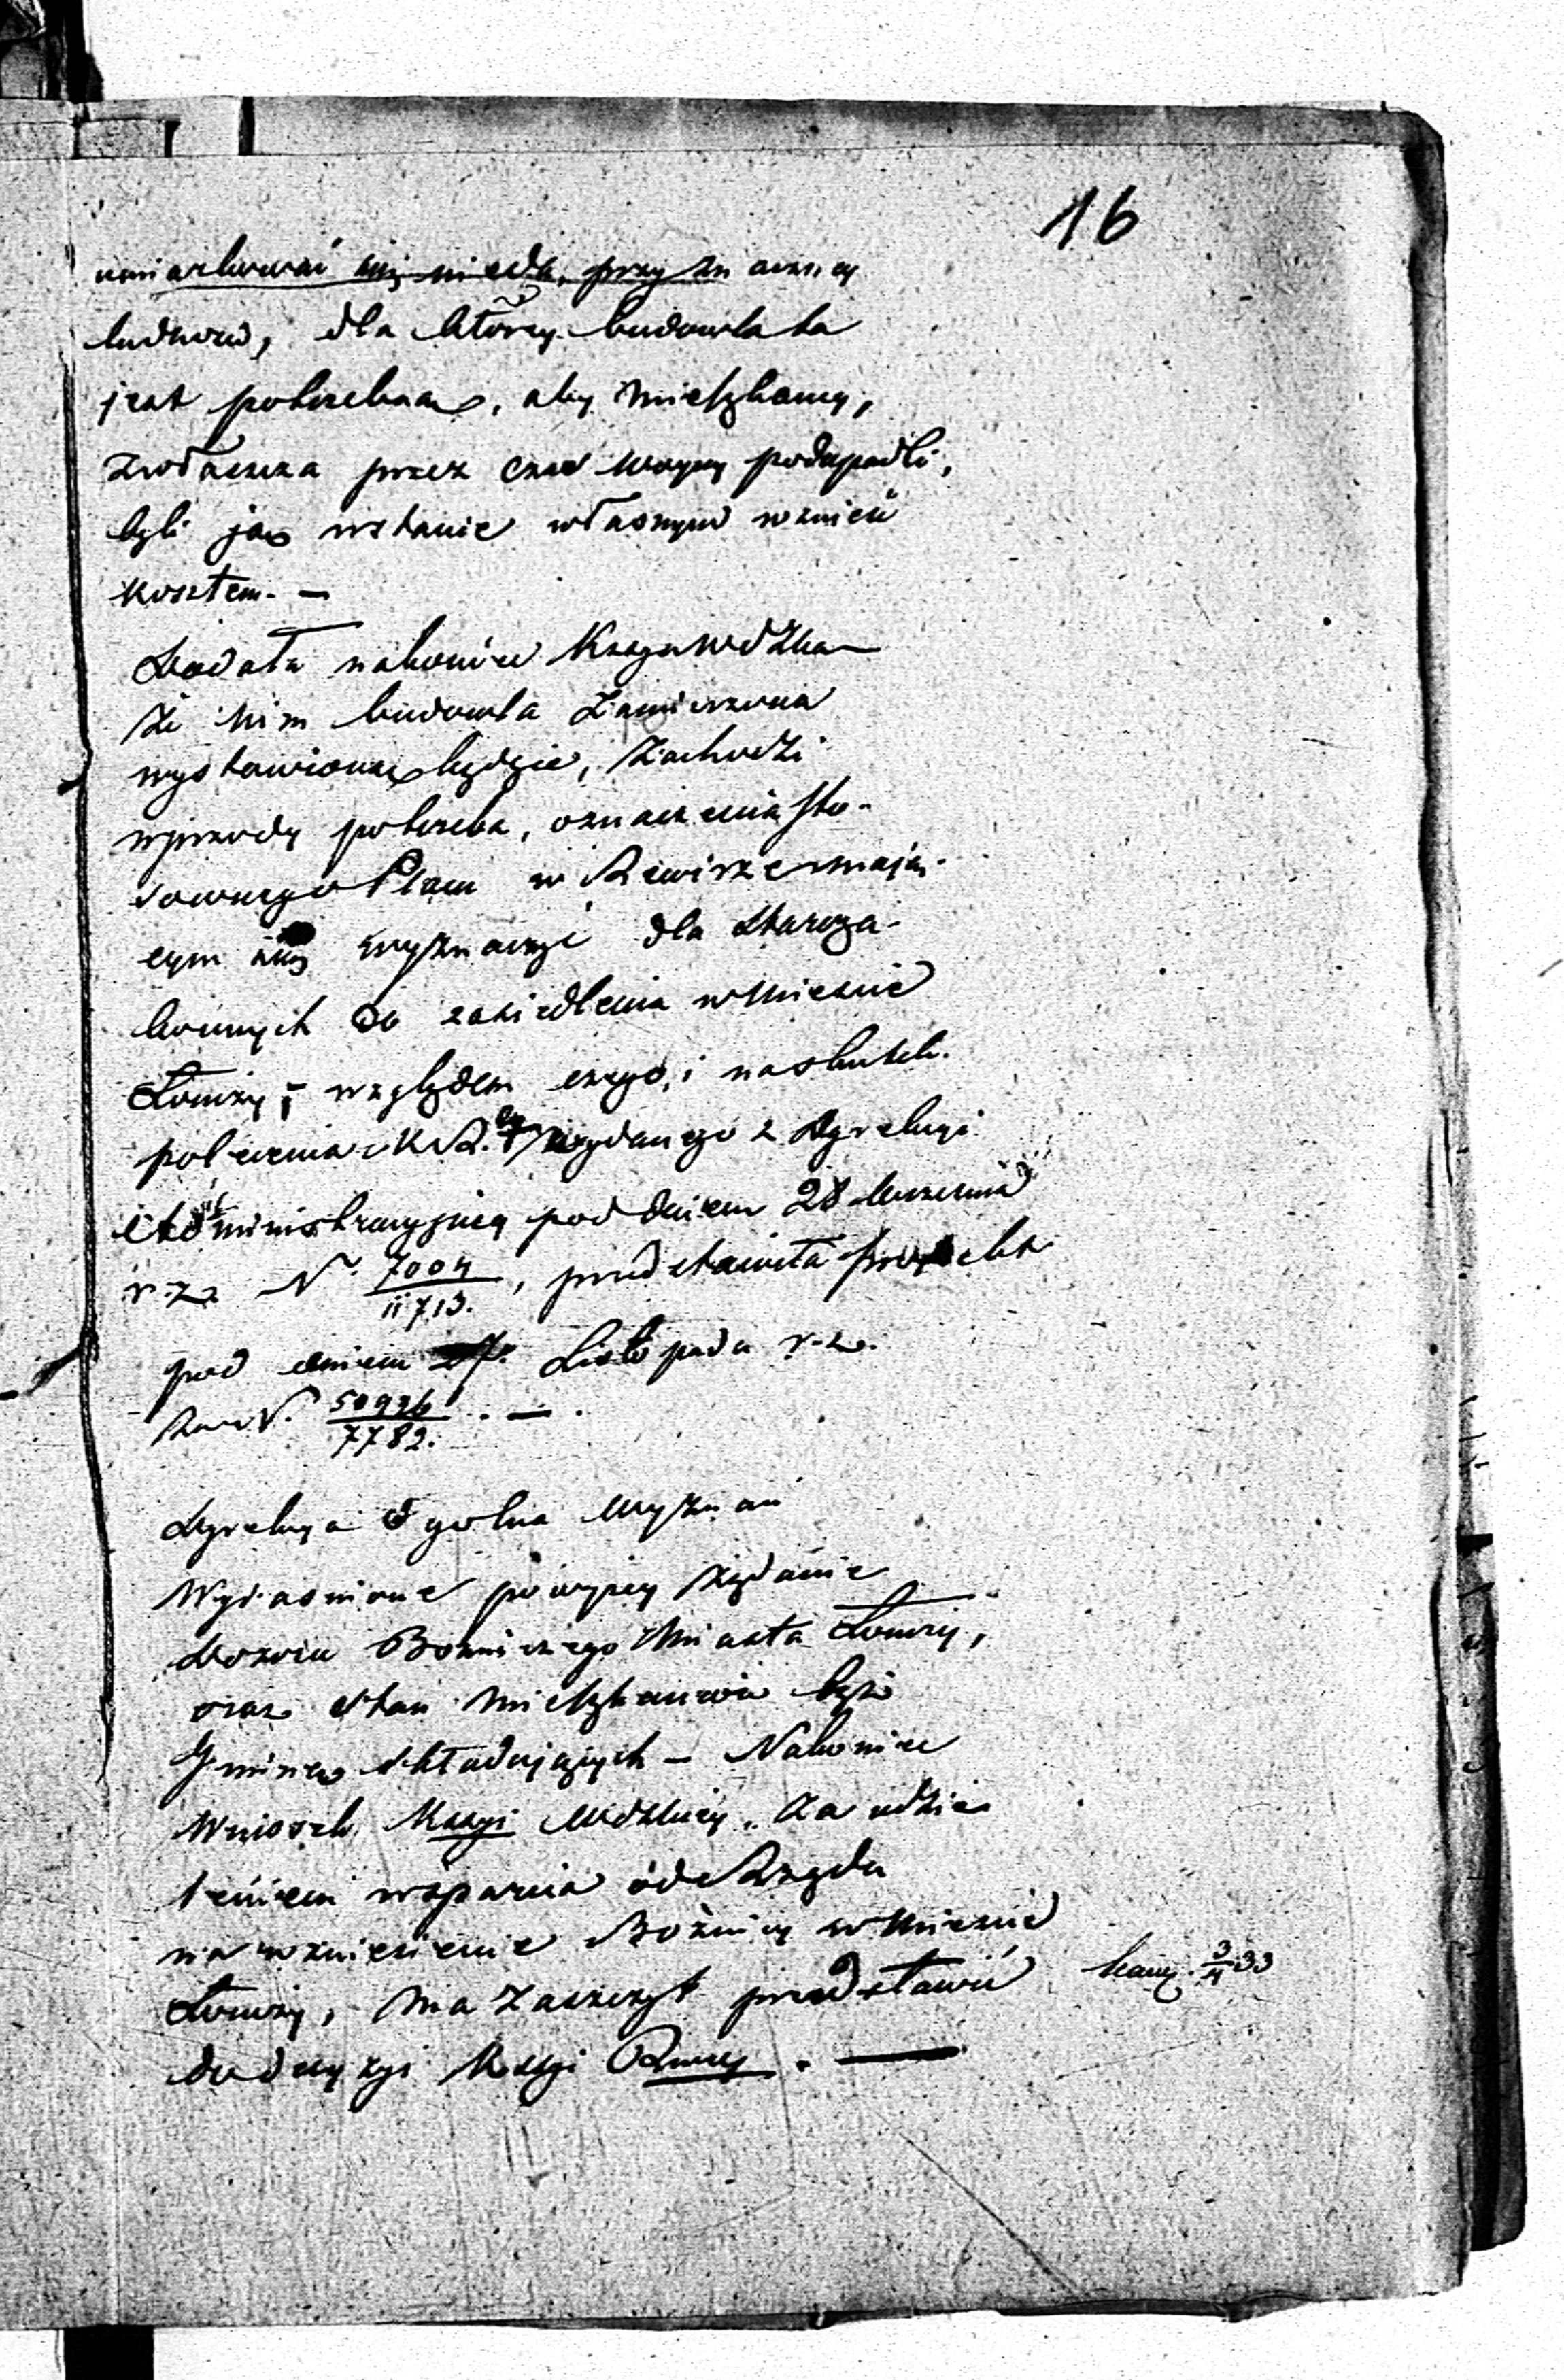 16
umiarkować się nieda, przy zn aczney
ludności, dla którey budowla ta
jest potrzebna, aby mieszkańcy,
zwłaszcza przez czas woyny podupadli,
byli ją w stanie własnym wznieść
kosztem. —
Dodała nakoniec Kssya Wdzka
że nim budowla zamierzona
wystawioną będzie, zachodzi
wprzody potrzeba, oznaczenia sto-
sownego Placu w Rewirze mają-
cym się wyznaczyć dla Staroza-
konnych do zasiedlenia w Mieście
Łomży, względem czego, i naskutek
polecenia K R. wydanego z Dyrekcyi
Administracyjney pod dniem 28 Września
r. z. N. 7004/11713., przedstawiła projekt
pod dniem Listopada r. z.
za N. 50926/7782. —
Dyrekcya Ogolna Wyznań
Wyjasnione powyżey żądanie
Dozoru Bożniczego Miasta Łomży,
oraz stan mieszkańców tęż
Gminę składających — Nakoniec
Wniosek Kssyi Wdzkiey, za udzie-
leniem wsparcia od Rządu
na wzniesienie Bożnicy w Mieście
Łomży, ma zaszczyt przedstawić
do decyzyi Kssyi Rzney. —
3/4 33